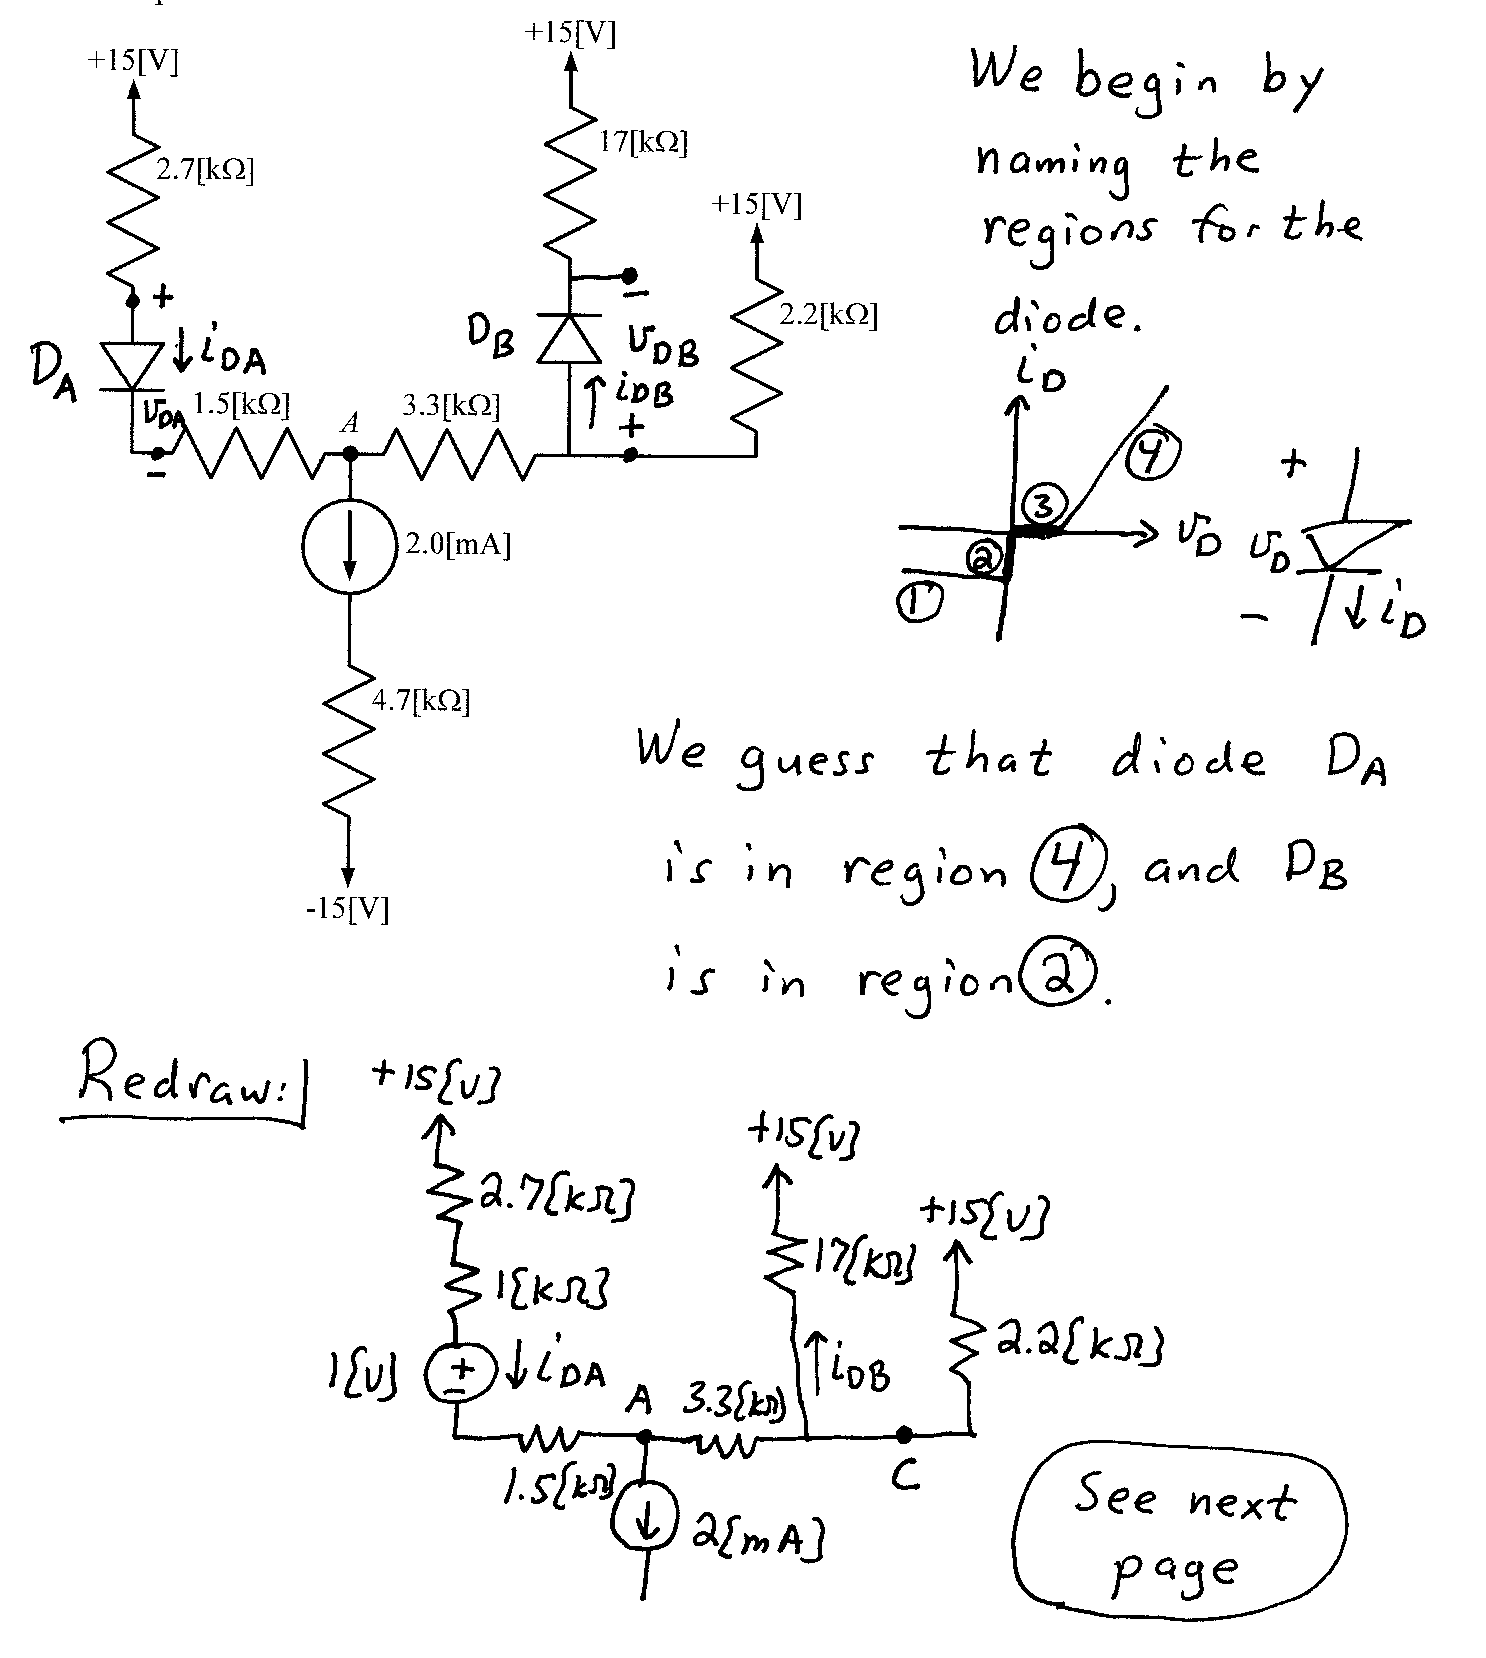 +15[V]
2.7[kΩ]
+
D_A
i_DA
v_DA
-
1.5[kΩ]
A
3.3[kΩ]
+15[V]
17[kΩ]
-
D_B
v_DB
i_DB
+
+15[V]
2.2[kΩ]
2.0[mA]
4.7[kΩ]
-15[V]
We begin by
naming the
regions for the
diode.
i_D
④
③
②
①
v_D
+
v_D
-
i_D
We guess that diode D_A
is in region ④, and D_B
is in region ②.
Redraw:
+15{V}
2.7{kΩ}
1{kΩ}
1{V}
+
-
i_DA
1.5{kΩ}
A
3.3{kΩ}
+15{V}
17{kΩ}
i_DB
+15{V}
2.2{kΩ}
C
2{mA}
See next
page